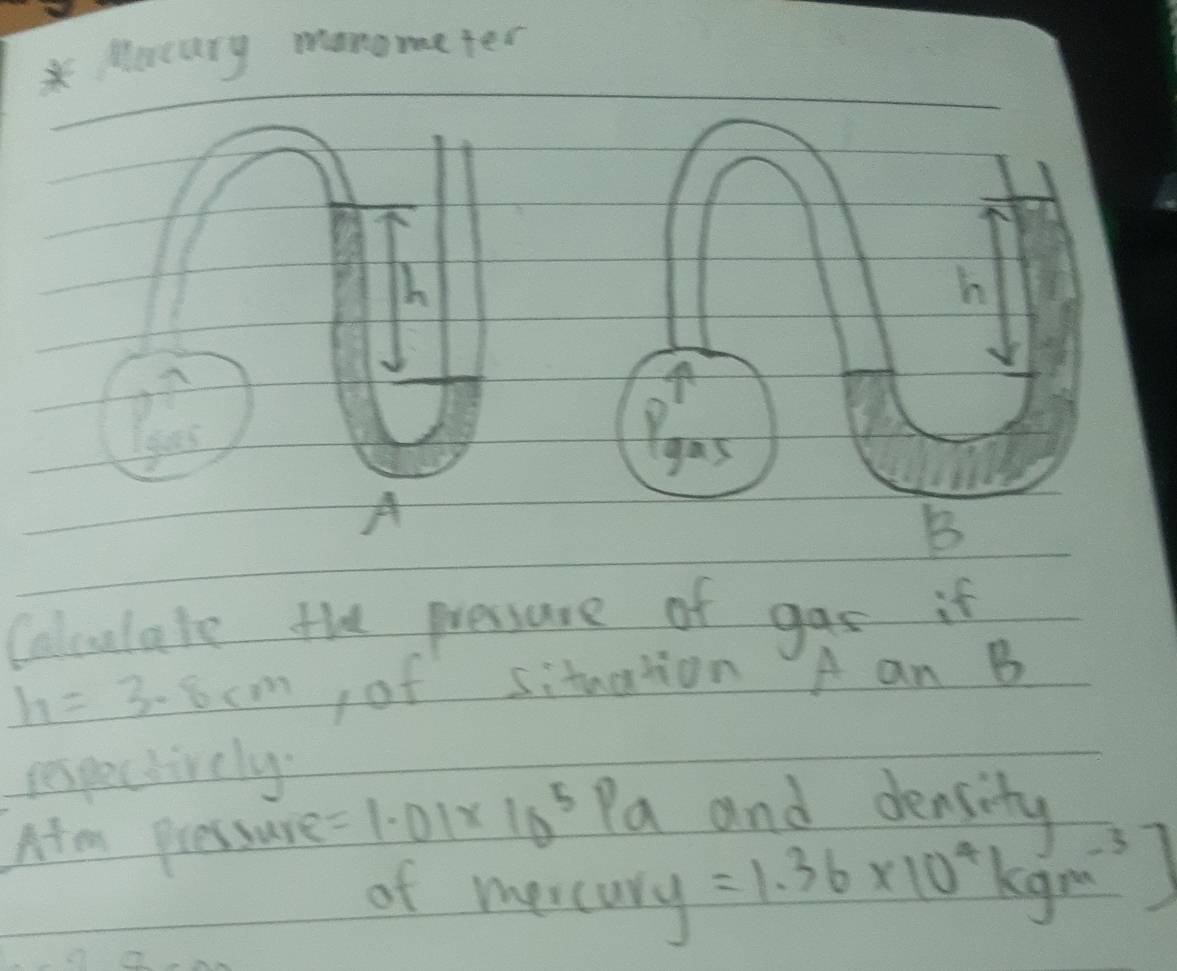 * Mercury manometer
h
h
Pgas
Pgas
A
B
Calculate the pressure of gas if
h = 3.8cm, of situation A an B
respectively.
Atm pressure = 1.01 × 10⁵ Pa and density
of mercury = 1.36 × 10⁴ kgm⁻³]